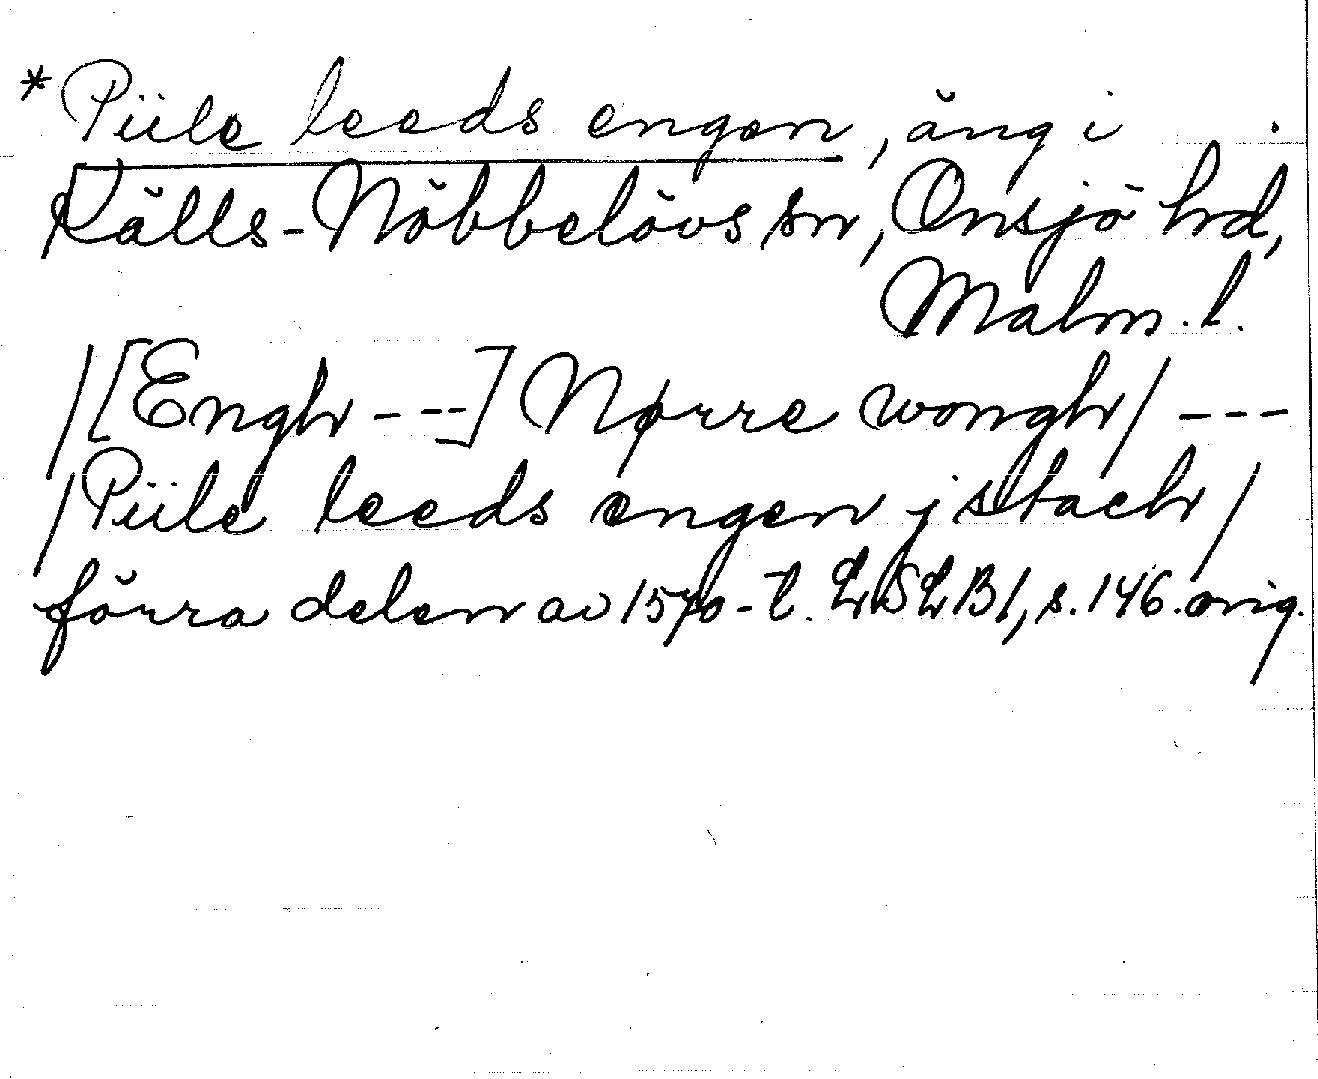 *Piile leeds engen, äng i
Källs-Nöbbelövs sn, Onsjö hd,
Malm. l.
/[Engh ---] Nørre wongh/ ---
/Piile leeds engen j stach/
förra delen av 1570-t. LSLB 1, s. 146. orig.